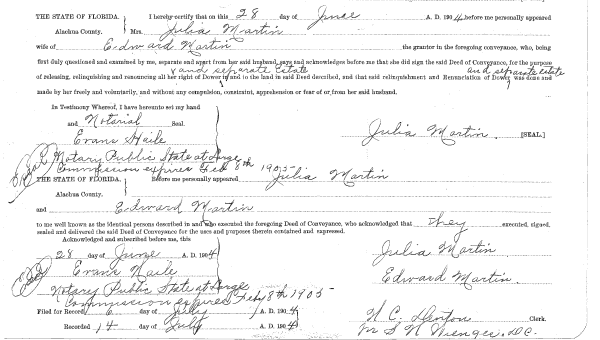 THE STATE OF FLORIDA. } I hereby certify that on this 28 day of June A. D. 1904, before me personally appeared
Alachua County. Mrs. Julia Martin
wife of Edward Martin the grantor in the foregoing conveyance, who, being
first duly questioned and examined by me, separate and apart from her said husband, says and acknowledges before me that she did sign the said Deed of Conveyance, for the purpose
and separate Estate and separate estate
of releasing, relinquishing and renouncing all her right of Dower in and to the land in said Deed described, and that said relinquishment and Renunciation of Dower was done and
made by her freely and voluntarily, and without any compulsion, constraint, apprehension or fear of or from her said husband.
In Testimony Whereof, I have hereunto set my hand
and Notarial Seal.
Evans Haile
Julia Martin [SEAL.]
Notary Public State at Large
Commission expires Feb 8th 1905
THE STATE OF FLORIDA. } Before me personally appeared Julia Martin
Alachua County.
and Edward Martin
to me well known as the identical persons described in and who executed the foregoing Deed of Conveyance, who acknowledged that they executed, signed,
sealed and delivered the said Deed of Conveyance for the uses and purposes therein contained and expressed.
Acknowledged and subscribed before me, this
28 day of June A. D. 1904
Julia Martin
Evans Haile
Edward Martin.
Notary Public State at Large
Commission expires Feby 8th 1905
Filed for Record 6 day of July 1904
H. C. Denton Clerk.
Recorded 14 day of July 1904
D.C.